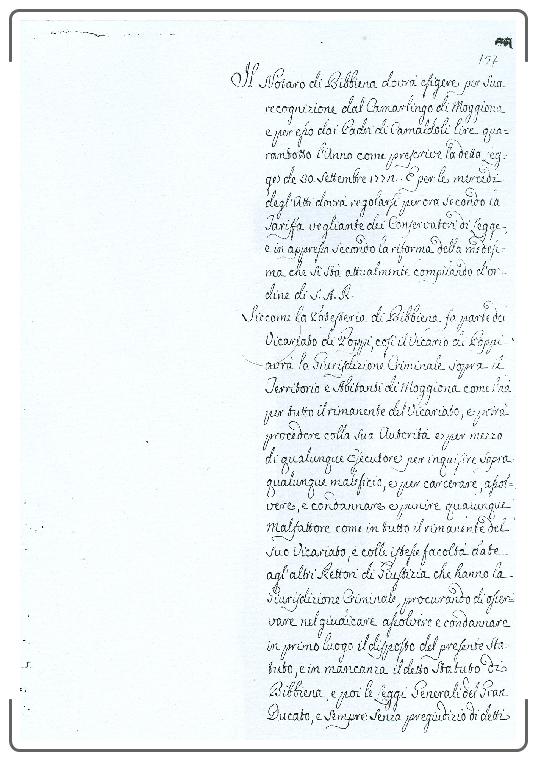 157
Il Notaro di Bibbiena dovrà esigere per sua
recognizione dal Camarlingo di Moggiona
e per esso dai Padri di Camaldoli lire qua-
rantotto l'Anno come prescrive la detta Leg-
ge de 30. Settembre 1772. E per le mercedi
degl'Atti dovrà regolarsi per ora secondo la
Tariffa vegliante dei Conservatori di Legge,
e in appresso secondo la riforma della medesi-
ma che si sta attualmente compilando d'or-
dine di S. A. R.
Siccome la Potesteria di Bibbiena fa parte del
Vicariato di Poppi, così il Vicario di Poppi
avrà la Giurisdizione Criminale sopra il
Territorio e Abitanti di Moggiona come l'ha
per tutto il rimanente del Vicariato, e potrà
procedere colla sua Autorità e per mezzo
di qualunque esecutore per inquisire sopra
qualunque maleficio, e per carcerare, assol-
vere, e condannare e punire qualunque
Malfattore come in tutto il rimanente del
suo Vicariato, e colle istesse facoltà date
agl'altri Rettori di Giustizia che hanno la
Giurisdizione Criminale, procurando di osser-
vare nel giudicare assolvere e condannare
in primo luogo il disposto del presente Sta-
tuto, e in mancanza il detto Statuto di
Bibbiena, e poi le Leggi Generali del Gran
Ducato, e sempre senza pregiudizio di detti